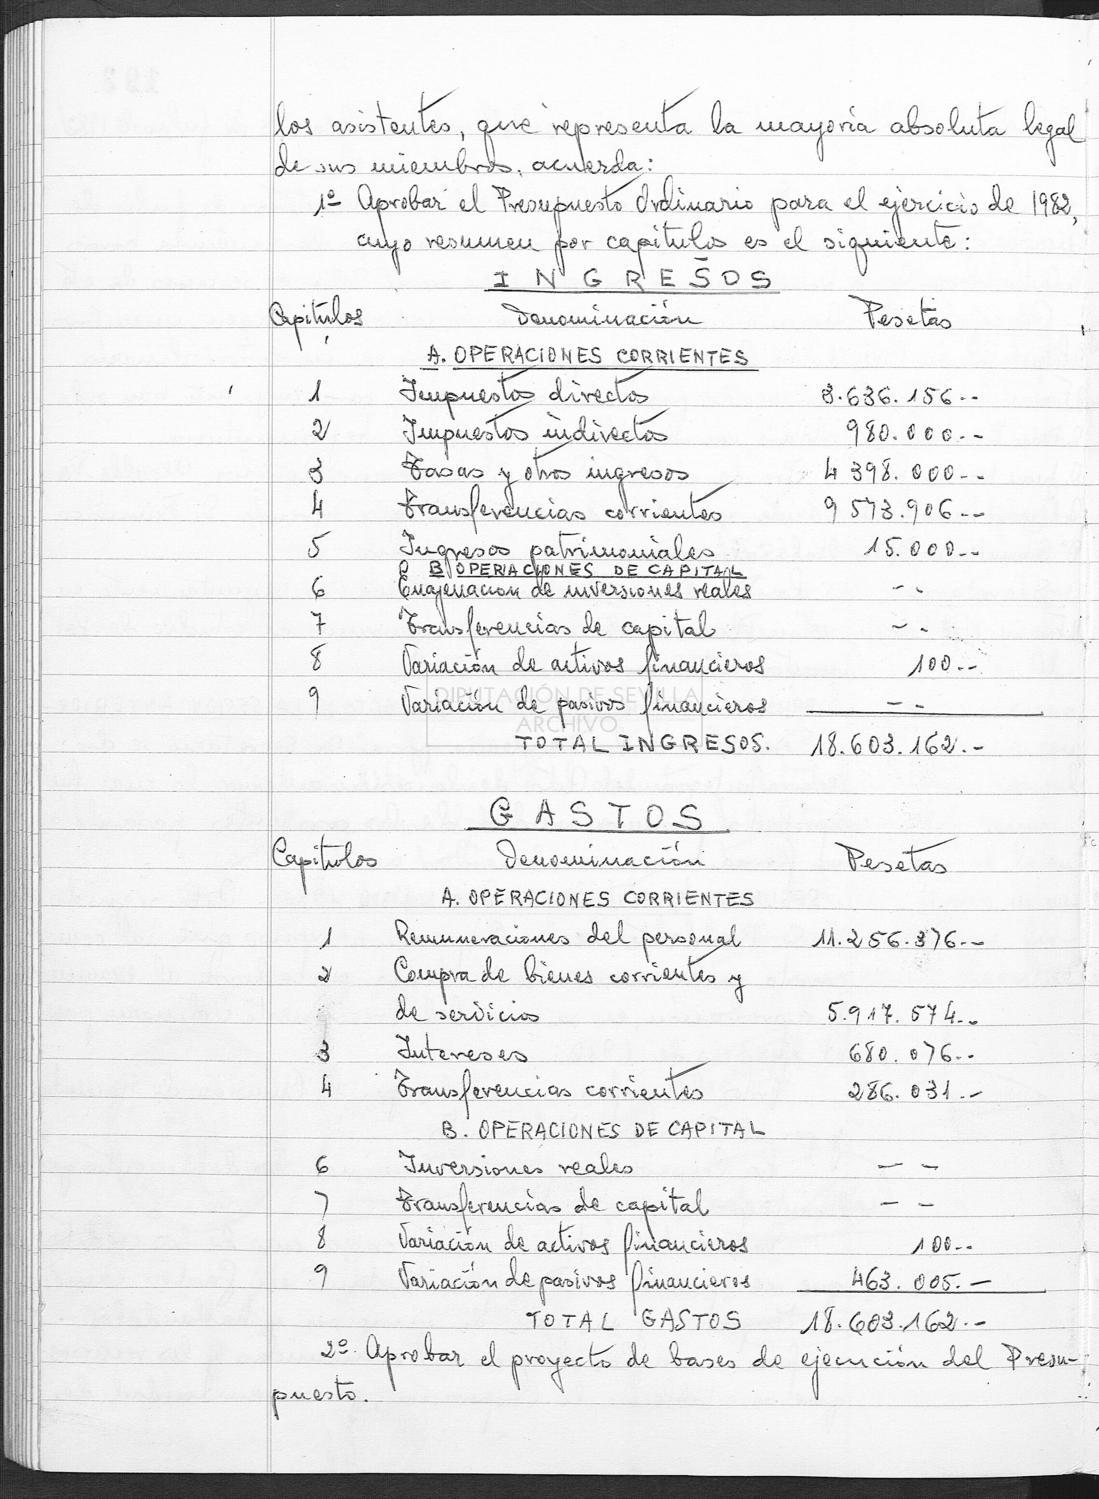 los asistentes, que representa la mayoría absoluta legal
de sus miembros, acuerda:
1º Aprobar el Presupuesto Ordinario para el ejercicio de 1982,
cuyo resumen por capítulos es el siguiente:
INGRESOS
Capítulos Denominación Pesetas
A. OPERACIONES CORRIENTES
1 Impuestos directos 3.636.156.--
2 Impuestos indirectos 980.000.--
3 Tasas y otros ingresos 4 398.000.--
4 Transferencias corrientes 9 573.906.--
5 Ingresos patrimoniales 15.000.--
B OPERACIONES DE CAPITAL
6 Enajenación de inversiones reales --
7 Transferencias de capital --
8 Variación de activos financieros 100.--
9 Variación de pasivos financieros --
DIPUTACIÓN DE SEVILLA
ARCHIVO
TOTAL INGRESOS. 18.603.162.--
GASTOS
Capítulos Denominación Pesetas
A. OPERACIONES CORRIENTES
1 Remuneraciones del personal 11.256.376.--
2 Compra de bienes corrientes y
de servicios 5.917.574.--
3 Intereses 680.076.--
4 Transferencias corrientes 286.031.--
B. OPERACIONES DE CAPITAL
6 Inversiones reales --
7 Transferencias de capital --
8 Variación de activos financieros 100.--
9 Variación de pasivos financieros 463.005.--
TOTAL GASTOS 18.603.162.--
2º. Aprobar el proyecto de bases de ejecución del Presu-
puesto.